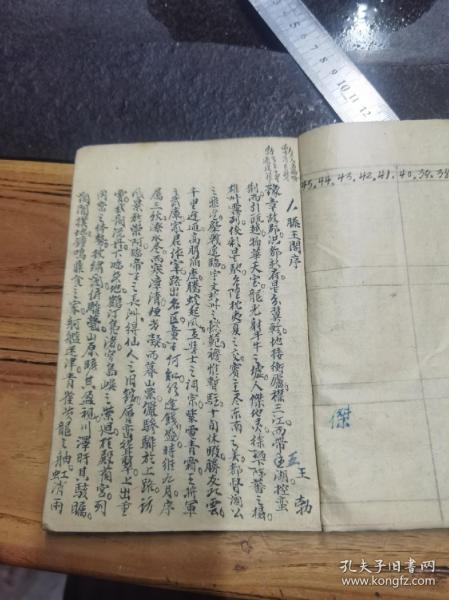 1. 滕王閣序
王勃
豫章故郡。洪都新府。星分翼軫。地接衡廬。襟三江而帶五湖。控蠻
荊而引甌越。物華天宝。龍光射牛斗之墟。人傑地灵。徐孺下陳蕃之榻。
雄州霧列。俊彩星馳。台隍枕夷夏之交。賓主尽東南之美。都督閻公
之雅望。棨戟遙臨。宇文新州之懿範。襜帷暫駐。十旬休暇。勝友如雲。
千里逢迎。高朋滿座。騰蛟起鳳。孟學士之詞宗。紫電青霜。王將軍
之武庫。家君作宰。路出名區。童子何知。躬逢勝餞。時維九月。序
屬三秋。潦水尽而寒潭清。煙光凝而暮山紫。儼驂騑於上路。訪
風景於崇阿。臨帝子之長洲。得仙人之旧館。層巒聳翠。上出重
霄。飛閣流丹。下臨無地。鶴汀鳧渚。窮島嶼之縈迴。桂殿蘭宮。列
岡巒之体勢。披綉闥。俯雕甍。山原曠其盈視。川澤盱其駭矚。
閭閻撲地。鐘鳴鼎食之家。舸艦迷津。青雀黃龍之舳。虹消雨
45. 44. 43. 42. 41. 40. 39. 38
傑
5 6 7 8 9 10 11 12
孔夫子旧书网
www.kongfz.com